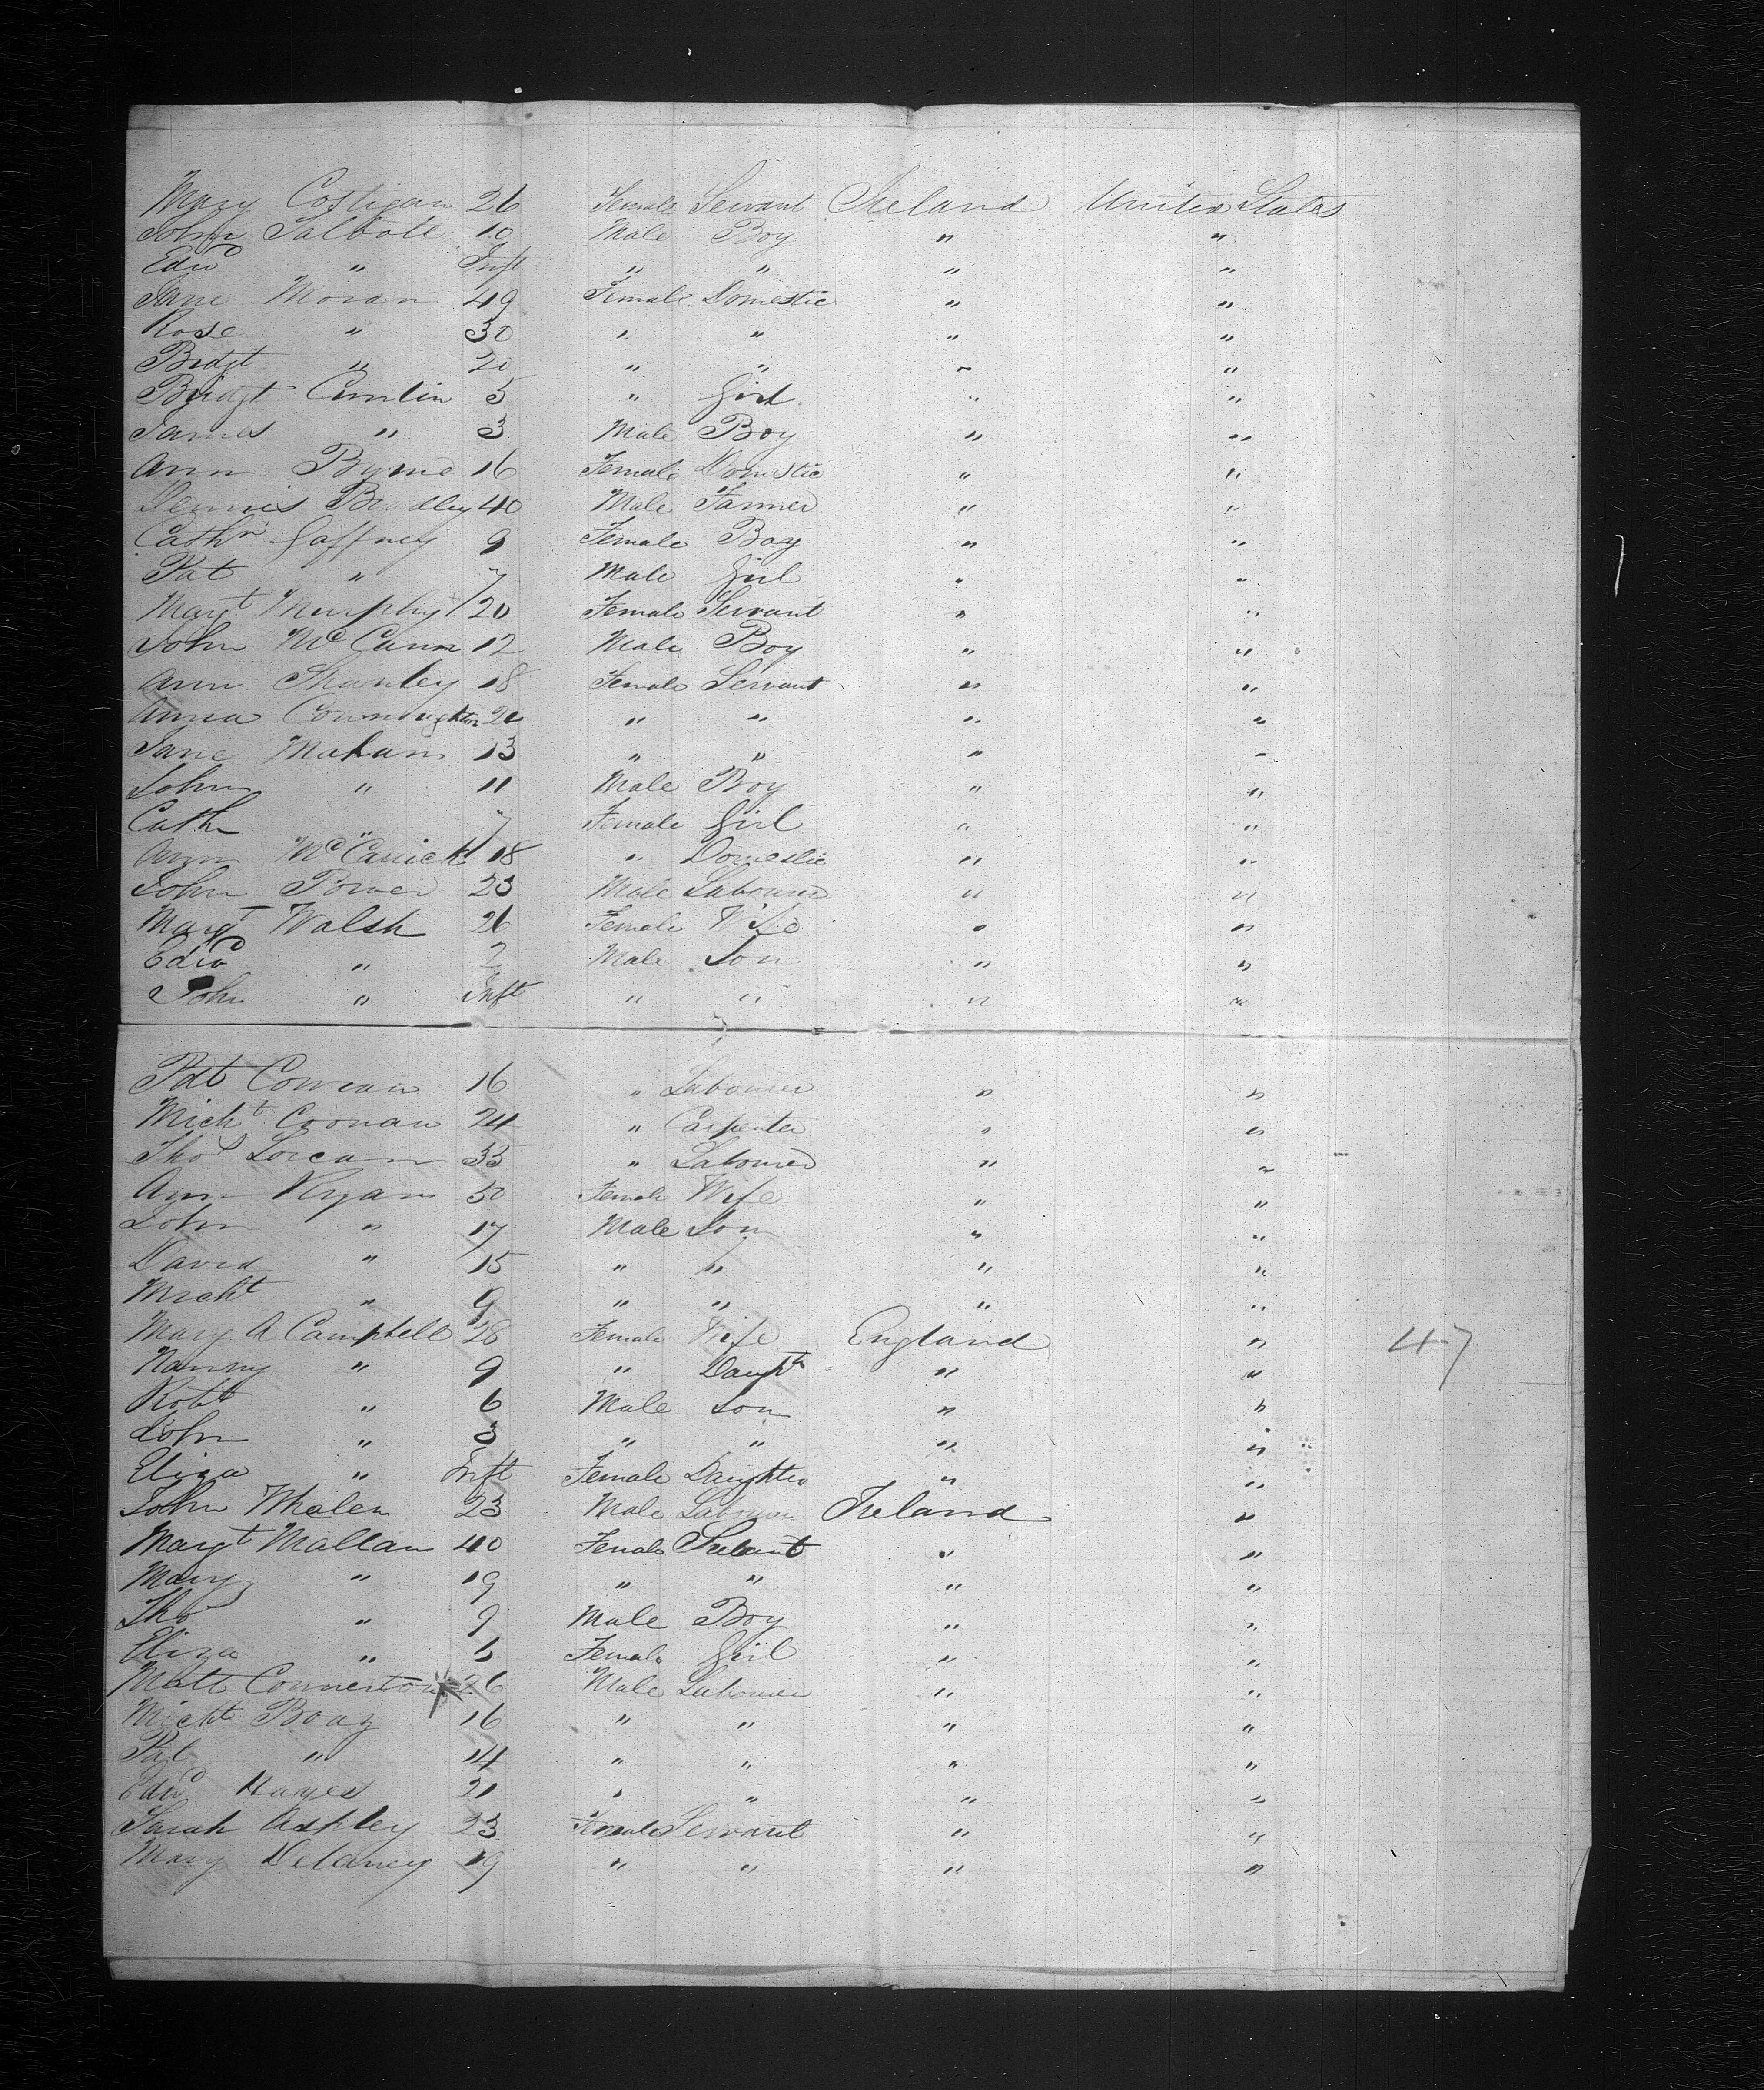 Mary Costigan 26 Female Servant Ireland United States
John Talbott 10 Male Boy " "
Edwd " Inft " " " "
Jane Moran 49 Female Domestic " "
Rose " 30 " " " "
Bridgt " 20 " " " "
Bridgt 5 " Girl " "
James " 3 Male Boy " "
Ann Byrne 16 Female Domestic " "
Dennis Bradley 40 Male Farmer " "
Cathn Gaffney 9 Female Boy " "
Pat " 7 Male Girl " "
Margt Murphy 20 Female Servant " "
John McCann 12 Male Boy " "
Ann Shanley 18 Female Servant " "
Anna Connoughton " " " "
Jane Mahan 13 " " " "
John " 11 Male Boy " "
Cath " 7 Female Girl " "
Ann McCarrick 18 " Domestic " "
John Power 23 Male Labourer " "
Margt Walsh 26 Female Wife " "
Edwd " 2 Male Son " "
John " Inft " " " "
Pat 16 " Labourer " "
Michl Coonan 24 " Carpenter " "
Thos Lorcan 35 " Labourer " "
Ann Ryan 50 Female Wife " "
John " 17 Male Son " "
David " 15 " " " "
Michl " 9 " " " "
Mary A Campbell 28 Female Wife England " 47
Nanny " 9 " Daughtr " "
Robt " 6 Male Son " "
John " 3 " " " "
Eliza " Inft Female Daughter " "
John Whalen 23 Male Labourer Ireland "
Margt Mallan 40 Female Servant " "
Mary " 19 " " " "
Tho " 9 Male Boy " "
Eliza " 6 Female Girl " "
Matt Connerton 26 Male Labourer " "
Michl Boay 16 " " " "
Pat " 14 " " " "
Edwd Hayes 21 " " " "
Sarah Ashley 23 Female Servant " "
Mary Delaney 19 " " " "